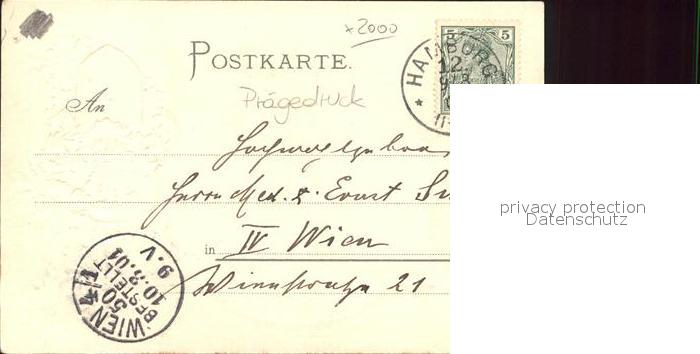 x 2000
5 5
POSTKARTE.
HAMBURG
12.
Prägedruck
An
Hochwohlgeboren
Herrn Med. Dr. Ernst
in IV Wien
21
privacy protection
Datenschutz
WIEN 4/1
50
BESTELLT
10.3.01
9.V